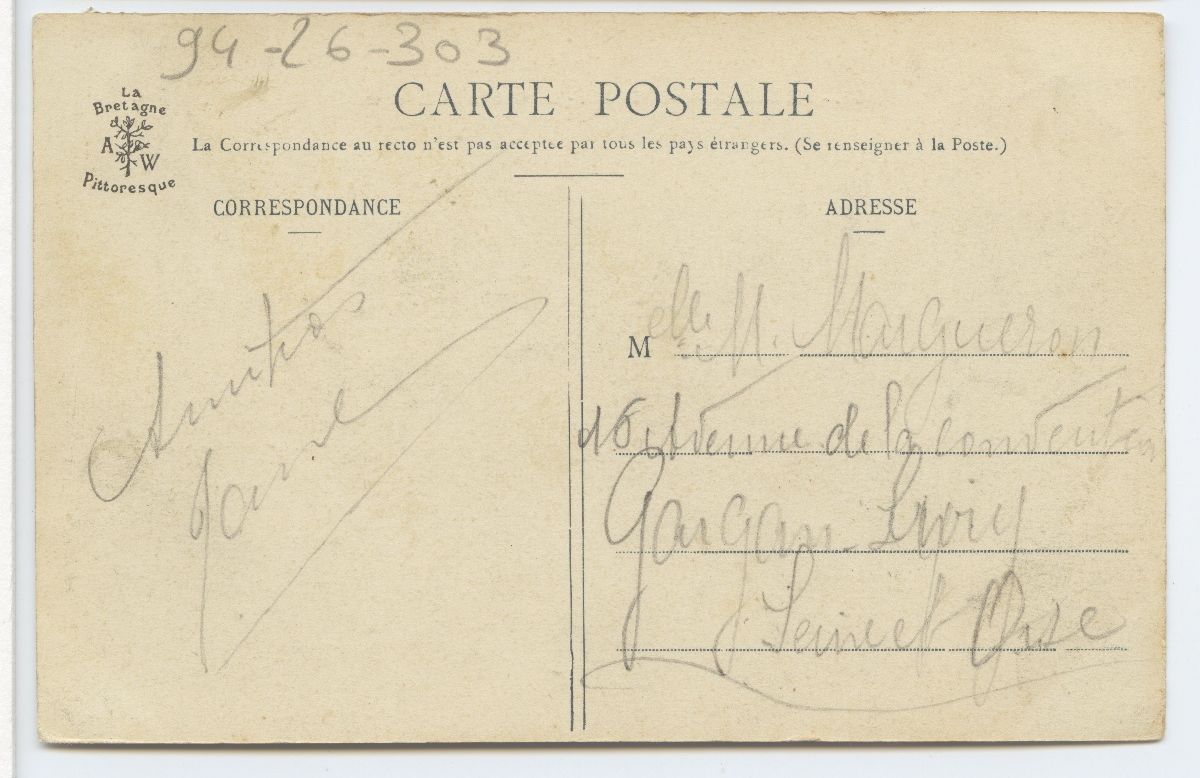 94-26-303
La
Bretagne
A W
Pittoresque
CARTE POSTALE
La Correspondance au recto n'est pas acceptée par tous les pays étrangers. (Se renseigner à la Poste.)
CORRESPONDANCE
ADRESSE
Amitiés
Melle M. Margueron
16 Avenue de la convention
Gargan-Livry
Seine et Oise